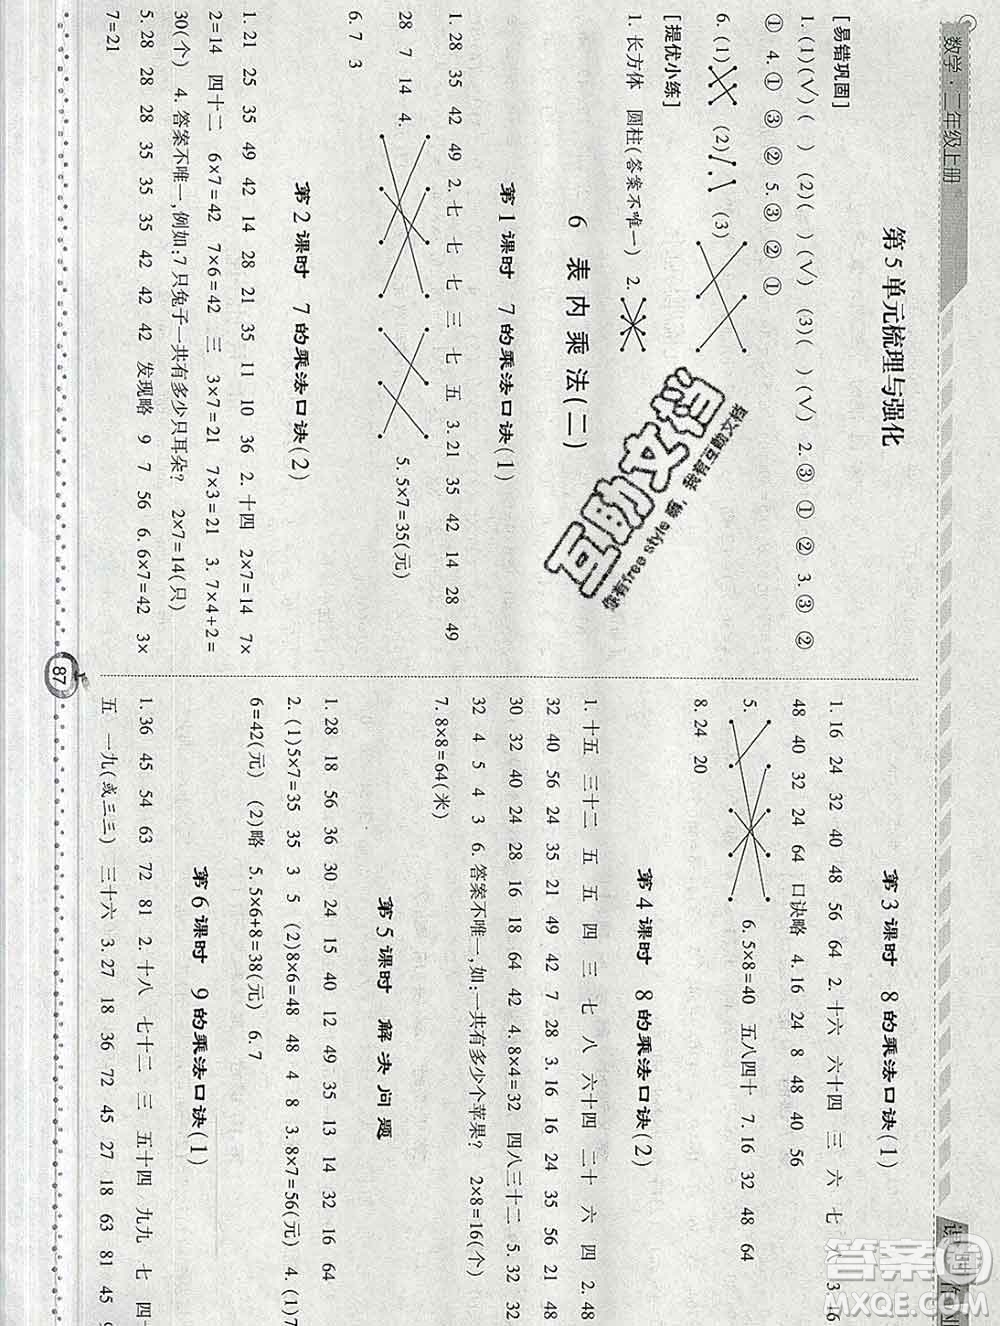 数学·二年级上册
第5单元梳理与强化
[易错巩固]
1. (1)(√)( ) (2)( )(√) (3)( )(√) 2. ③ ① ② 3. ③ ②
① 4. ① ③ ② 5. ③ ② ①
6. (1) (2) (3)
[提优小练]
1. 长方体 圆柱(答案不唯一) 2.
6 表内乘法(二)
第1课时 7的乘法口诀(1)
1. 28 35 42 49 2. 七 七 七 三 七 五 3. 21 35 42 14 28 49
28 7 14 4. 5. 5×7=35(元)
6. 7 3
第2课时 7的乘法口诀(2)
1. 21 25 35 49 42 14 28 21 35 11 10 36 2. 十四 2×7=14 7×
2=14 四十二 6×7=42 7×6=42 三 3×7=21 7×3=21 3. 7×4+2=
30(个) 4. 答案不唯一,例如:7只兔子一共有多少只耳朵? 2×7=14(只)
5. 28 28 28 35 35 35 42 42 42 发现略 9 7 56 6. 6×7=42 3×
7=21
87
第3课时 8的乘法口诀(1)
1. 16 24 32 40 48 56 64 2. 十六 六十四 三 六 七 3. 16
48 40 32 24 64 口诀略 4. 16 24 8 48 40 56
5. 6. 5×8=40 五八四十 7. 16 32 48 64
8. 24 20
第4课时 8的乘法口诀(2)
1. 十五 三十二 五 五 四 三 七 八 六十四 二十 六 四 2. 48
32 40 56 24 35 21 49 42 40 3. 16 16 24 35 21 56
30 32 40 24 28 16 18 64 42 4. 8×4=32 四八三十二 5. 32
32 4 5 4 3 6. 答案不唯一,如:一共有多少个苹果? 2×8=16(个)
7. 8×8=64(米)
第5课时 解决问题
1. 28 18 56 36 30 24 15 40 12 49 35 13 14 32 16 64
2. (1)5×7=35 35 3 5 (2)8×6=48 48 4 8 3. 8×7=56(元) 4. (1)7×
6=42(元) (2)略 5. 5×6+8=38(元) 6. 7
第6课时 9的乘法口诀(1)
1. 36 45 54 63 72 81 2. 十八 七十二 三 五十四 九九 七 四
五 一九(或三三) 三十六 3. 27 18 36 72 45 27 18 63 81 45
互助文档
你有free style 嘛, 我有互助文档
答案圈
MXQE.COM